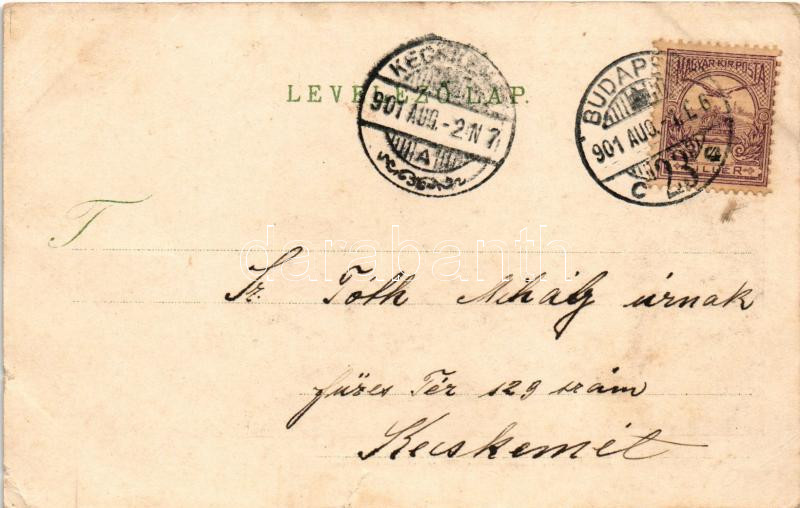 LEVELEZŐ-LAP.
KECSKEM
901 AUG.-2.N 7
A
BUDAPE
901 AUG.
C 23
MAGYAR KIR. POSTA
T
darabanth
Sz. Tóth Mihály úrnak
füzes Tér 129 szám
Kecskemét